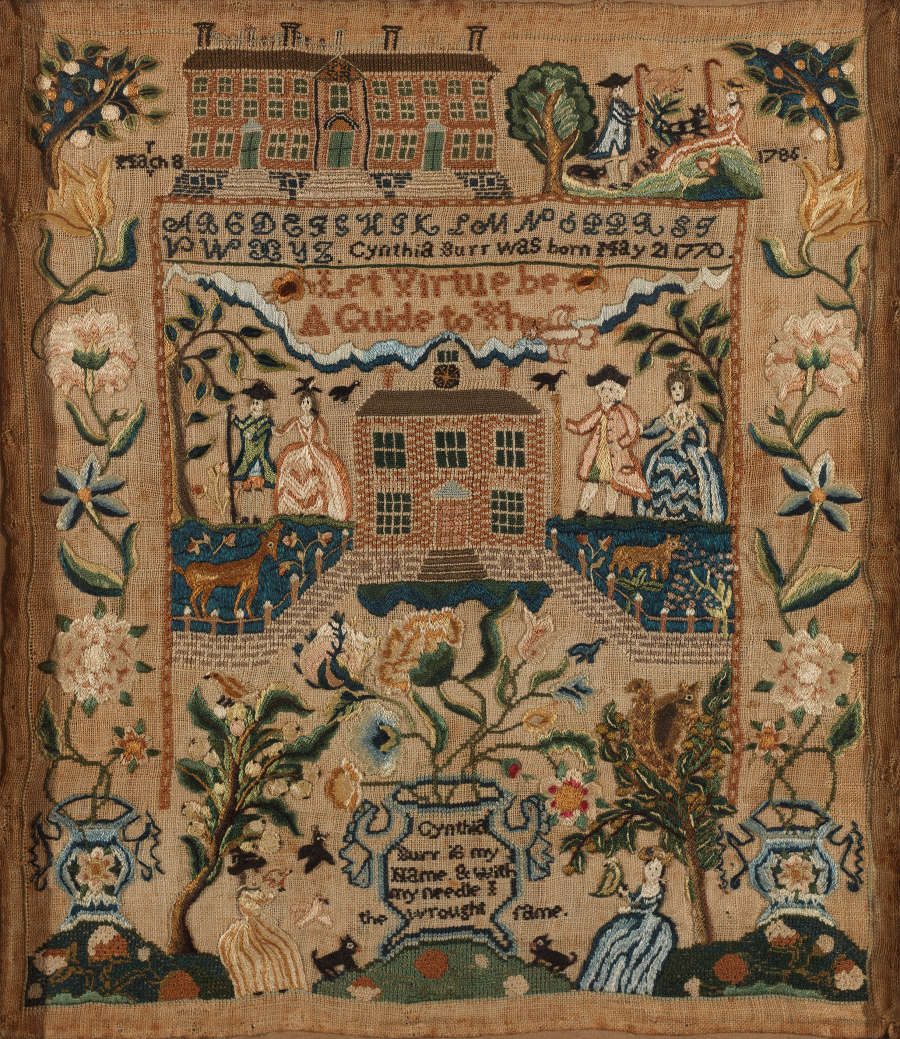 March 8
1786.
A B C D E F G H I K L M N O P Q R S T
V W X Y Z. Cynthia Burr was born May 21 1770.
Let Virtue be
A Guide to The
Cynthia
Burr is my
Name & with
my needle I
the wrought same.